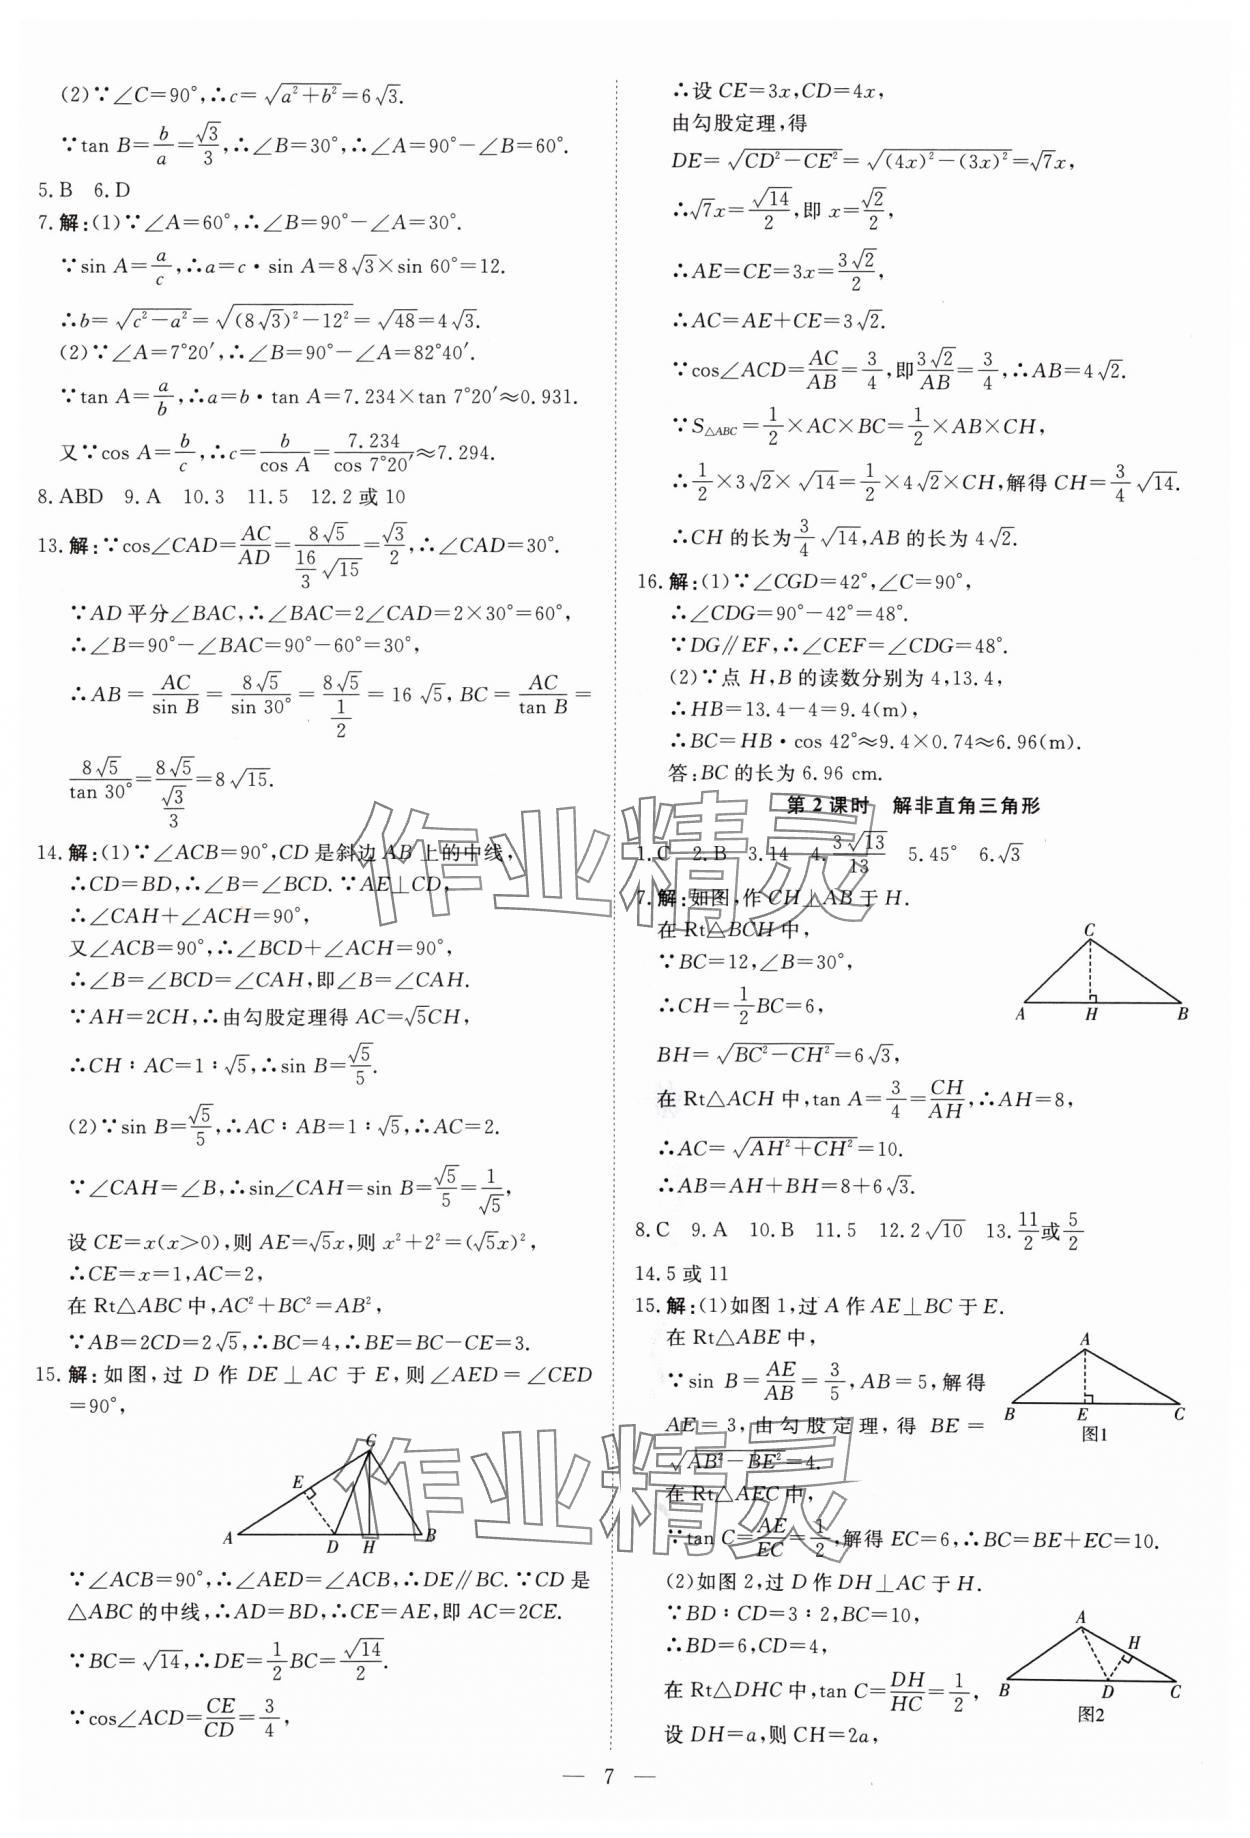 (2)∵∠C=90°,∴c=√(a²+b²)=6√3.
∵tan B=b/a=√3/3,∴∠B=30°,∴∠A=90°−∠B=60°.
5.B 6.D
7.解:(1)∵∠A=60°,∴∠B=90°−∠A=30°.
∵sin A=a/c,∴a=c·sin A=8√3×sin 60°=12.
∴b=√(c²−a²)=√((8√3)²−12²)=√48=4√3.
(2)∵∠A=7°20′,∴∠B=90°−∠A=82°40′.
∵tan A=a/b,∴a=b·tan A=7.234×tan 7°20′≈0.931.
又∵cos A=b/c,∴c=b/cos A=7.234/cos 7°20′≈7.294.
8.ABD 9.A 10.3 11.5 12.2或10
13.解:∵cos∠CAD=AC/AD=8√5/(16/3 √15)=√3/2,∴∠CAD=30°.
∵AD平分∠BAC,∴∠BAC=2∠CAD=2×30°=60°,
∴∠B=90°−∠BAC=90°−60°=30°,
∴AB=AC/sin B=8√5/sin 30°=8√5/(1/2)=16√5,BC=AC/tan B=
8√5/tan 30°=8√5/(√3/3)=8√15.
14.解:(1)∵∠ACB=90°,CD是斜边AB上的中线,
∴CD=BD,∴∠B=∠BCD.∵AE⊥CD,
∴∠CAH+∠ACH=90°,
又∠ACB=90°,∴∠BCD+∠ACH=90°,
∴∠B=∠BCD=∠CAH,即∠B=∠CAH.
∵AH=2CH,∴由勾股定理得AC=√5CH,
∴CH∶AC=1∶√5,∴sin B=√5/5.
(2)∵sin B=√5/5,∴AC∶AB=1∶√5,∴AC=2.
∵∠CAH=∠B,∴sin∠CAH=sin B=√5/5=1/√5,
设CE=x(x>0),则AE=√5x,则x²+2²=(√5x)²,
∴CE=x=1,AC=2,
在Rt△ABC中,AC²+BC²=AB²,
∵AB=2CD=2√5,∴BC=4,∴BE=BC−CE=3.
15.解:如图,过D作DE⊥AC于E,则∠AED=∠CED
=90°,
C
E
A D H B
∵∠ACB=90°,∴∠AED=∠ACB,∴DE∥BC.∵CD是
△ABC的中线,∴AD=BD,∴CE=AE,即AC=2CE.
∵BC=√14,∴DE=1/2BC=√14/2.
∵cos∠ACD=CE/CD=3/4,
∴设CE=3x,CD=4x,
由勾股定理,得
DE=√(CD²−CE²)=√((4x)²−(3x)²)=√7x,
∴√7x=√14/2,即x=√2/2,
∴AE=CE=3x=3√2/2,
∴AC=AE+CE=3√2.
∵cos∠ACD=AC/AB=3/4,即3√2/AB=3/4,∴AB=4√2.
∵S△ABC=1/2×AC×BC=1/2×AB×CH,
∴1/2×3√2×√14=1/2×4√2×CH,解得CH=3/4√14.
∴CH的长为3/4√14,AB的长为4√2.
16.解:(1)∵∠CGD=42°,∠C=90°,
∴∠CDG=90°−42°=48°.
∵DG∥EF,∴∠CEF=∠CDG=48°.
(2)∵点H,B的读数分别为4,13.4,
∴HB=13.4−4=9.4(m),
∴BC=HB·cos 42°≈9.4×0.74≈6.96(m).
答:BC的长为6.96 cm.
第2课时 解非直角三角形
1.C 2.B 3.14 4.3√13/13 5.45° 6.√3
7.解:如图,作CH⊥AB于H.
在Rt△BCH中,
∵BC=12,∠B=30°,
∴CH=1/2BC=6,
BH=√(BC²−CH²)=6√3,
C
A H B
在Rt△ACH中,tan A=3/4=CH/AH,∴AH=8,
∴AC=√(AH²+CH²)=10.
∴AB=AH+BH=8+6√3.
8.C 9.A 10.B 11.5 12.2√10 13.11/2或5/2
14.5或11
15.解:(1)如图1,过A作AE⊥BC于E.
在Rt△ABE中,
∵sin B=AE/AB=3/5,AB=5,解得
AE=3,由勾股定理,得BE=
√(AB²−BE²)=4.
A
B E C
图1
在Rt△AEC中,
∵tan C=AE/EC=1/2,解得EC=6,∴BC=BE+EC=10.
(2)如图2,过D作DH⊥AC于H.
∵BD∶CD=3∶2,BC=10,
∴BD=6,CD=4,
在Rt△DHC中,tan C=DH/HC=1/2,
设DH=a,则CH=2a,
A
H
B D C
图2
— 7 —
作业精灵
作业精灵